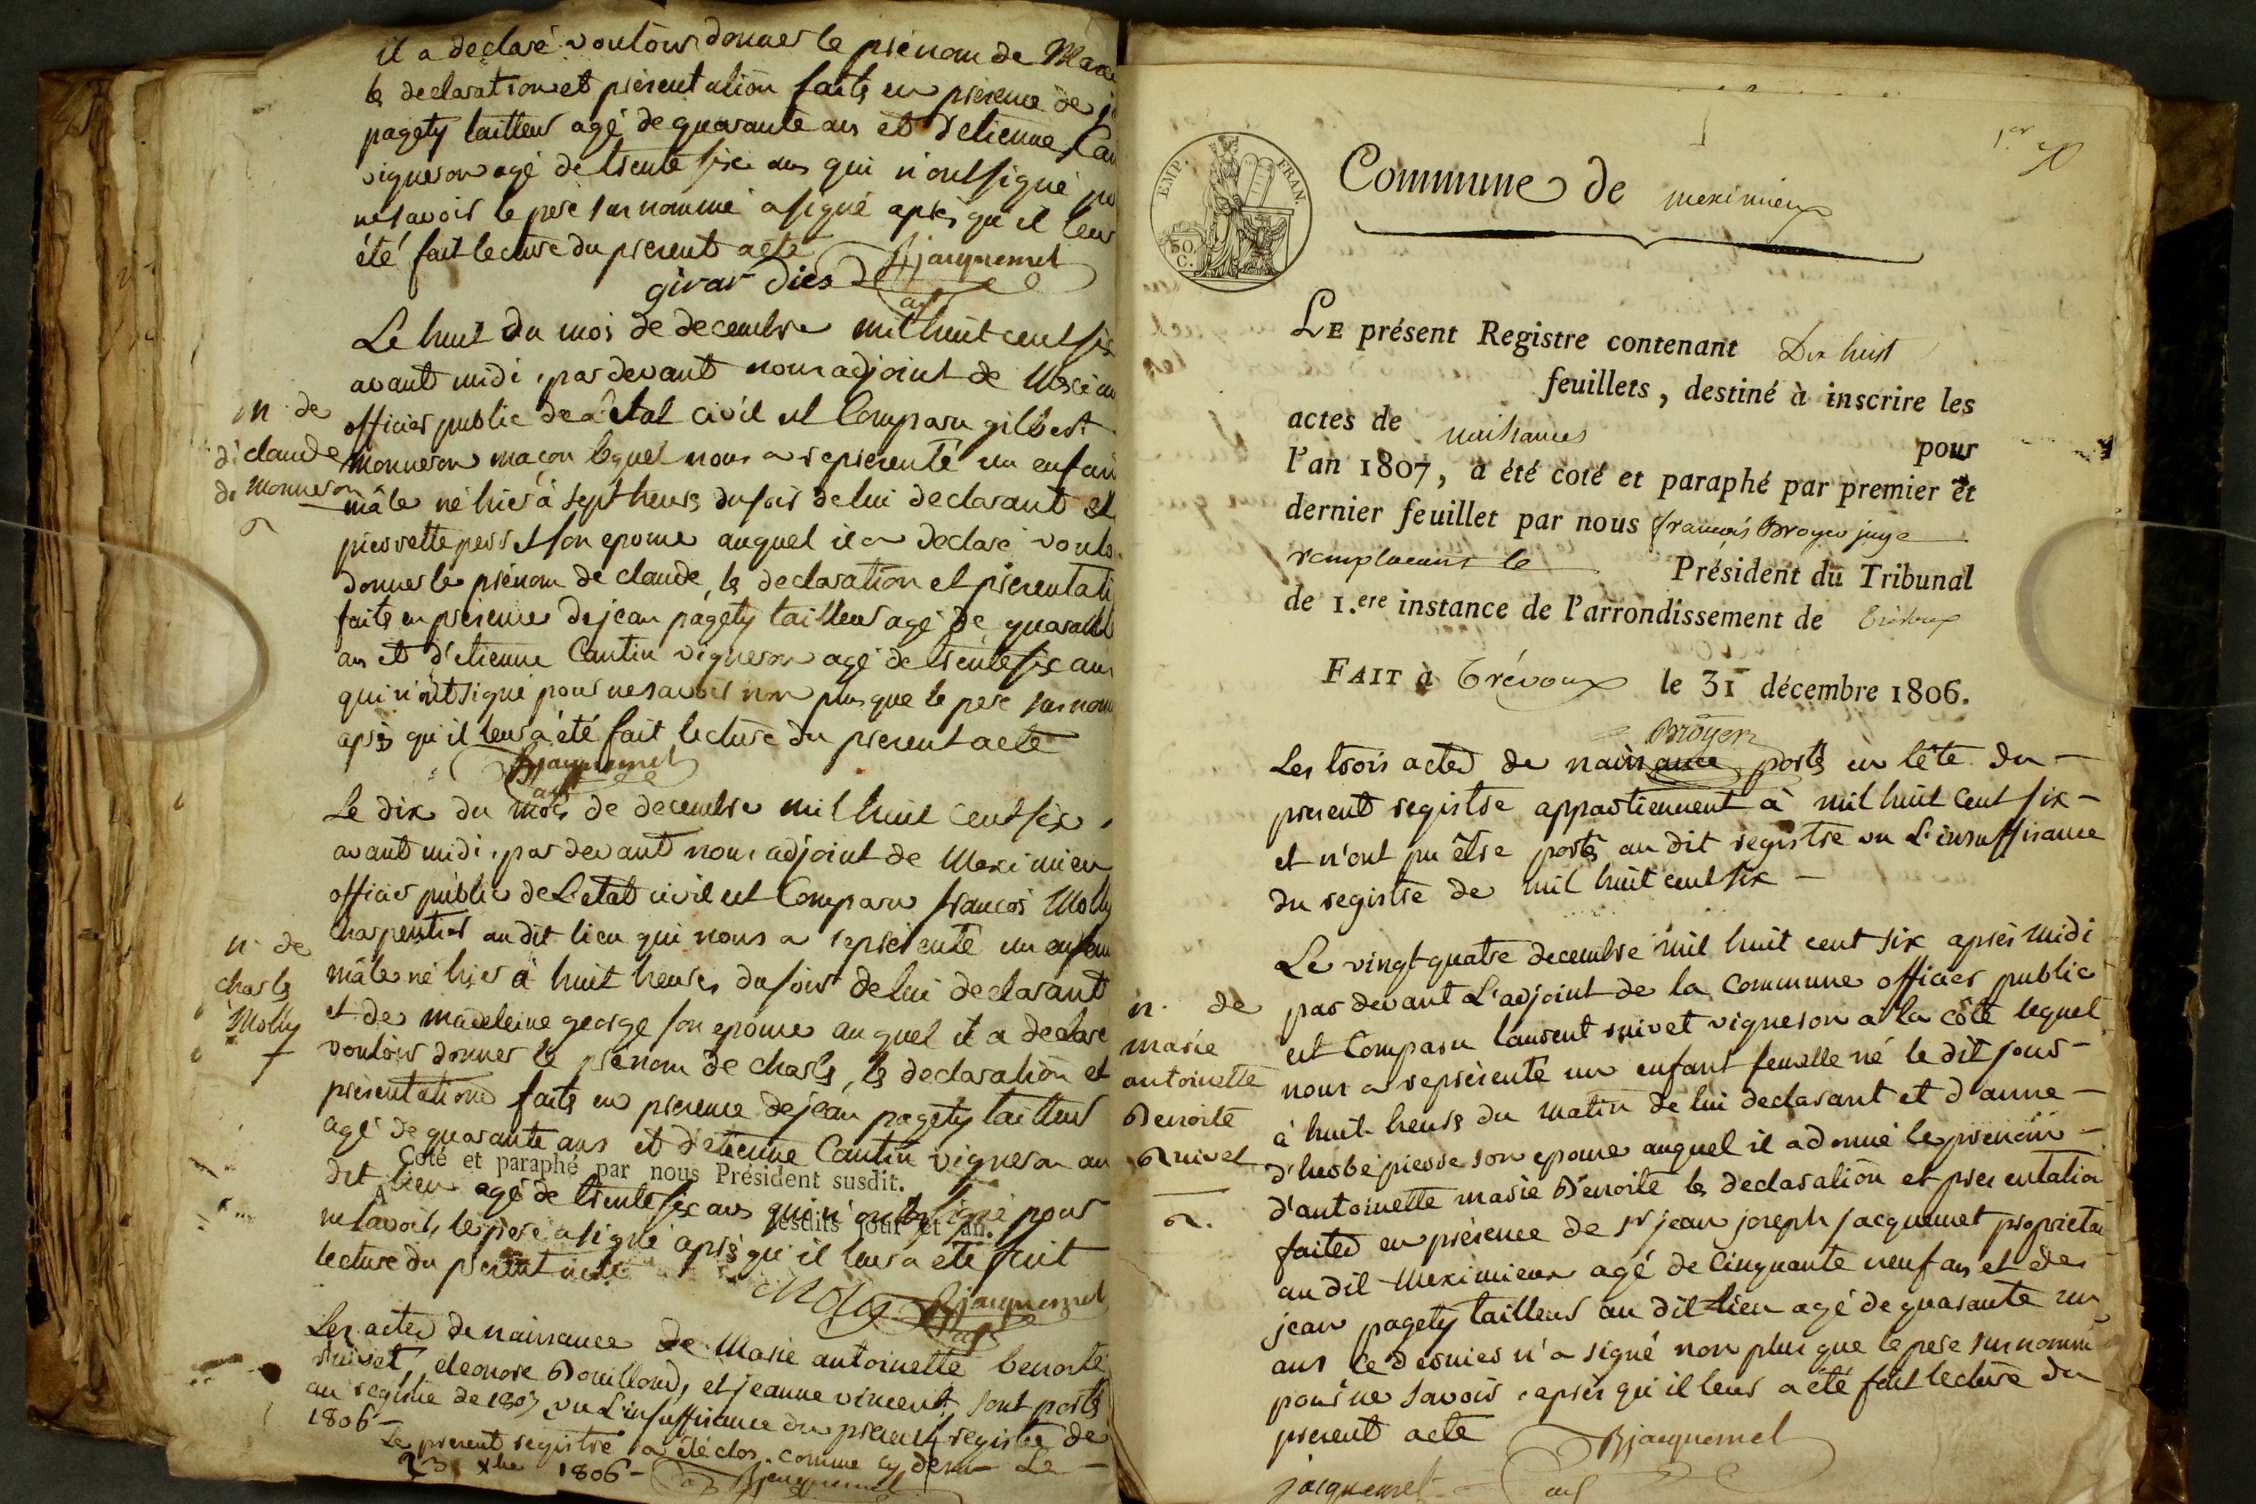 il a declaré vouloir donner le prénom de
les declaration et présentation faite en présence de
pagety tailleur agé de quarante ans et d'etienne
vigneron agé de trente six ans qui n'ont signé
ne savoir le pere sus nommé a signé après qu'il leur
été fait lecture du present acte
girar dies Bjacquemet
adj
Le huit du mois de decembre mil huit cent six
avant midi, par devant nous adjoint de
officier public de l'Etat civil est Comparu gilbert
n de
d. claude
de Monneron
Monneron maçon lequel nous a representé un enfant
mâle né hier à sept heures du soir de lui declarant et
pierrette son epouse auquel il a declaré
donner le prénom de claude, les declaration et
faite en présence de jean pagety tailleur agé de quarante
ans et d'etienne Cantin vigneron agé de trente six ans
qui n'ont signé pour ne savoir non plus que le pere
après qu'il leur a été fait lecture du present acte
Bjacquemet
adj
Le dix du mois de decembre mil huit cent six
avant midi, par devant nous adjoint de Meximieu
officier public de L'etat civil est Comparu francois Molly
n. de
charles
Molly
charpentier au dit lieu qui nous a representé un enfant
mâle né hier à huit heures du soir de lui declarant
et de madeleine george son epouse auquel il a declaré
vouloir donner le prénom de charles, les declaration et
présentation faite en presence de jean pagety tailleur
agé de quarante ans et d'etienne Cantin vigneron au
Coté et paraphé par nous Président susdit.
dit lieu agé de trente six ans qui n'ont signé pour
A
lesdits jour et an.
ne savoir, le pere a signé après qu'il leur a été fait
lecture du present acte
Bjacquemet
adj
Les actes de naissance de Marie antoinette benoite
nivet, eleonore Bouilloud, et jeanne vincent, sont portés
au registre de 1807 vu L'insuffisance du present registre de
1806 –
Le present registre a été clos comme cy Le –
23 xbre 1806 – Bjacquemet
1er
EMP. FRAN.
50 C.
Commune de meximieux
LE présent Registre contenant Dix huit
feuillets, destiné à inscrire les
actes de naissances pour
l'an 1807, a été coté et paraphé par premier et
dernier feuillet par nous francois Broyer juge
remplacant le Président du Tribunal
de 1.ere instance de l'arrondissement de Trévoux
FAIT à Trévoux le 31 décembre 1806.
Broyer
Les trois actes de naissance portés en tête du –
present registre appartiennent à mil huit cent six –
et n'ont pu être portés au dit registre vu L'insuffisance
du registre de mil huit cent six –
Le vingt quatre decembre mil huit cent six après midi
n. de
marie
antoinette
Benoite
nivet
par devant L'adjoint de la commune officier public
est Comparu laurent nivet vigneron a la côte lequel
nous a representé un enfant femelle né le dit jour –
à huit heures du matin de lui declarant et d'anne –
d'herbe pierre son epouse auquel il a donné le prenom –
d'antoinette marie Benoite les declaration et presentation
faites en présence de sr jean joseph jacquemet
au dit Meximieux agé de Cinquante neuf ans et de
jean pagety tailleur au dit lieu agé de quarante un
ans ce dernier n'a signé non plus que le pere sus nommé
pour ne savoir, après qu'il leur a été fait lecture du
present acte Bjacquemet
jacquemet adj